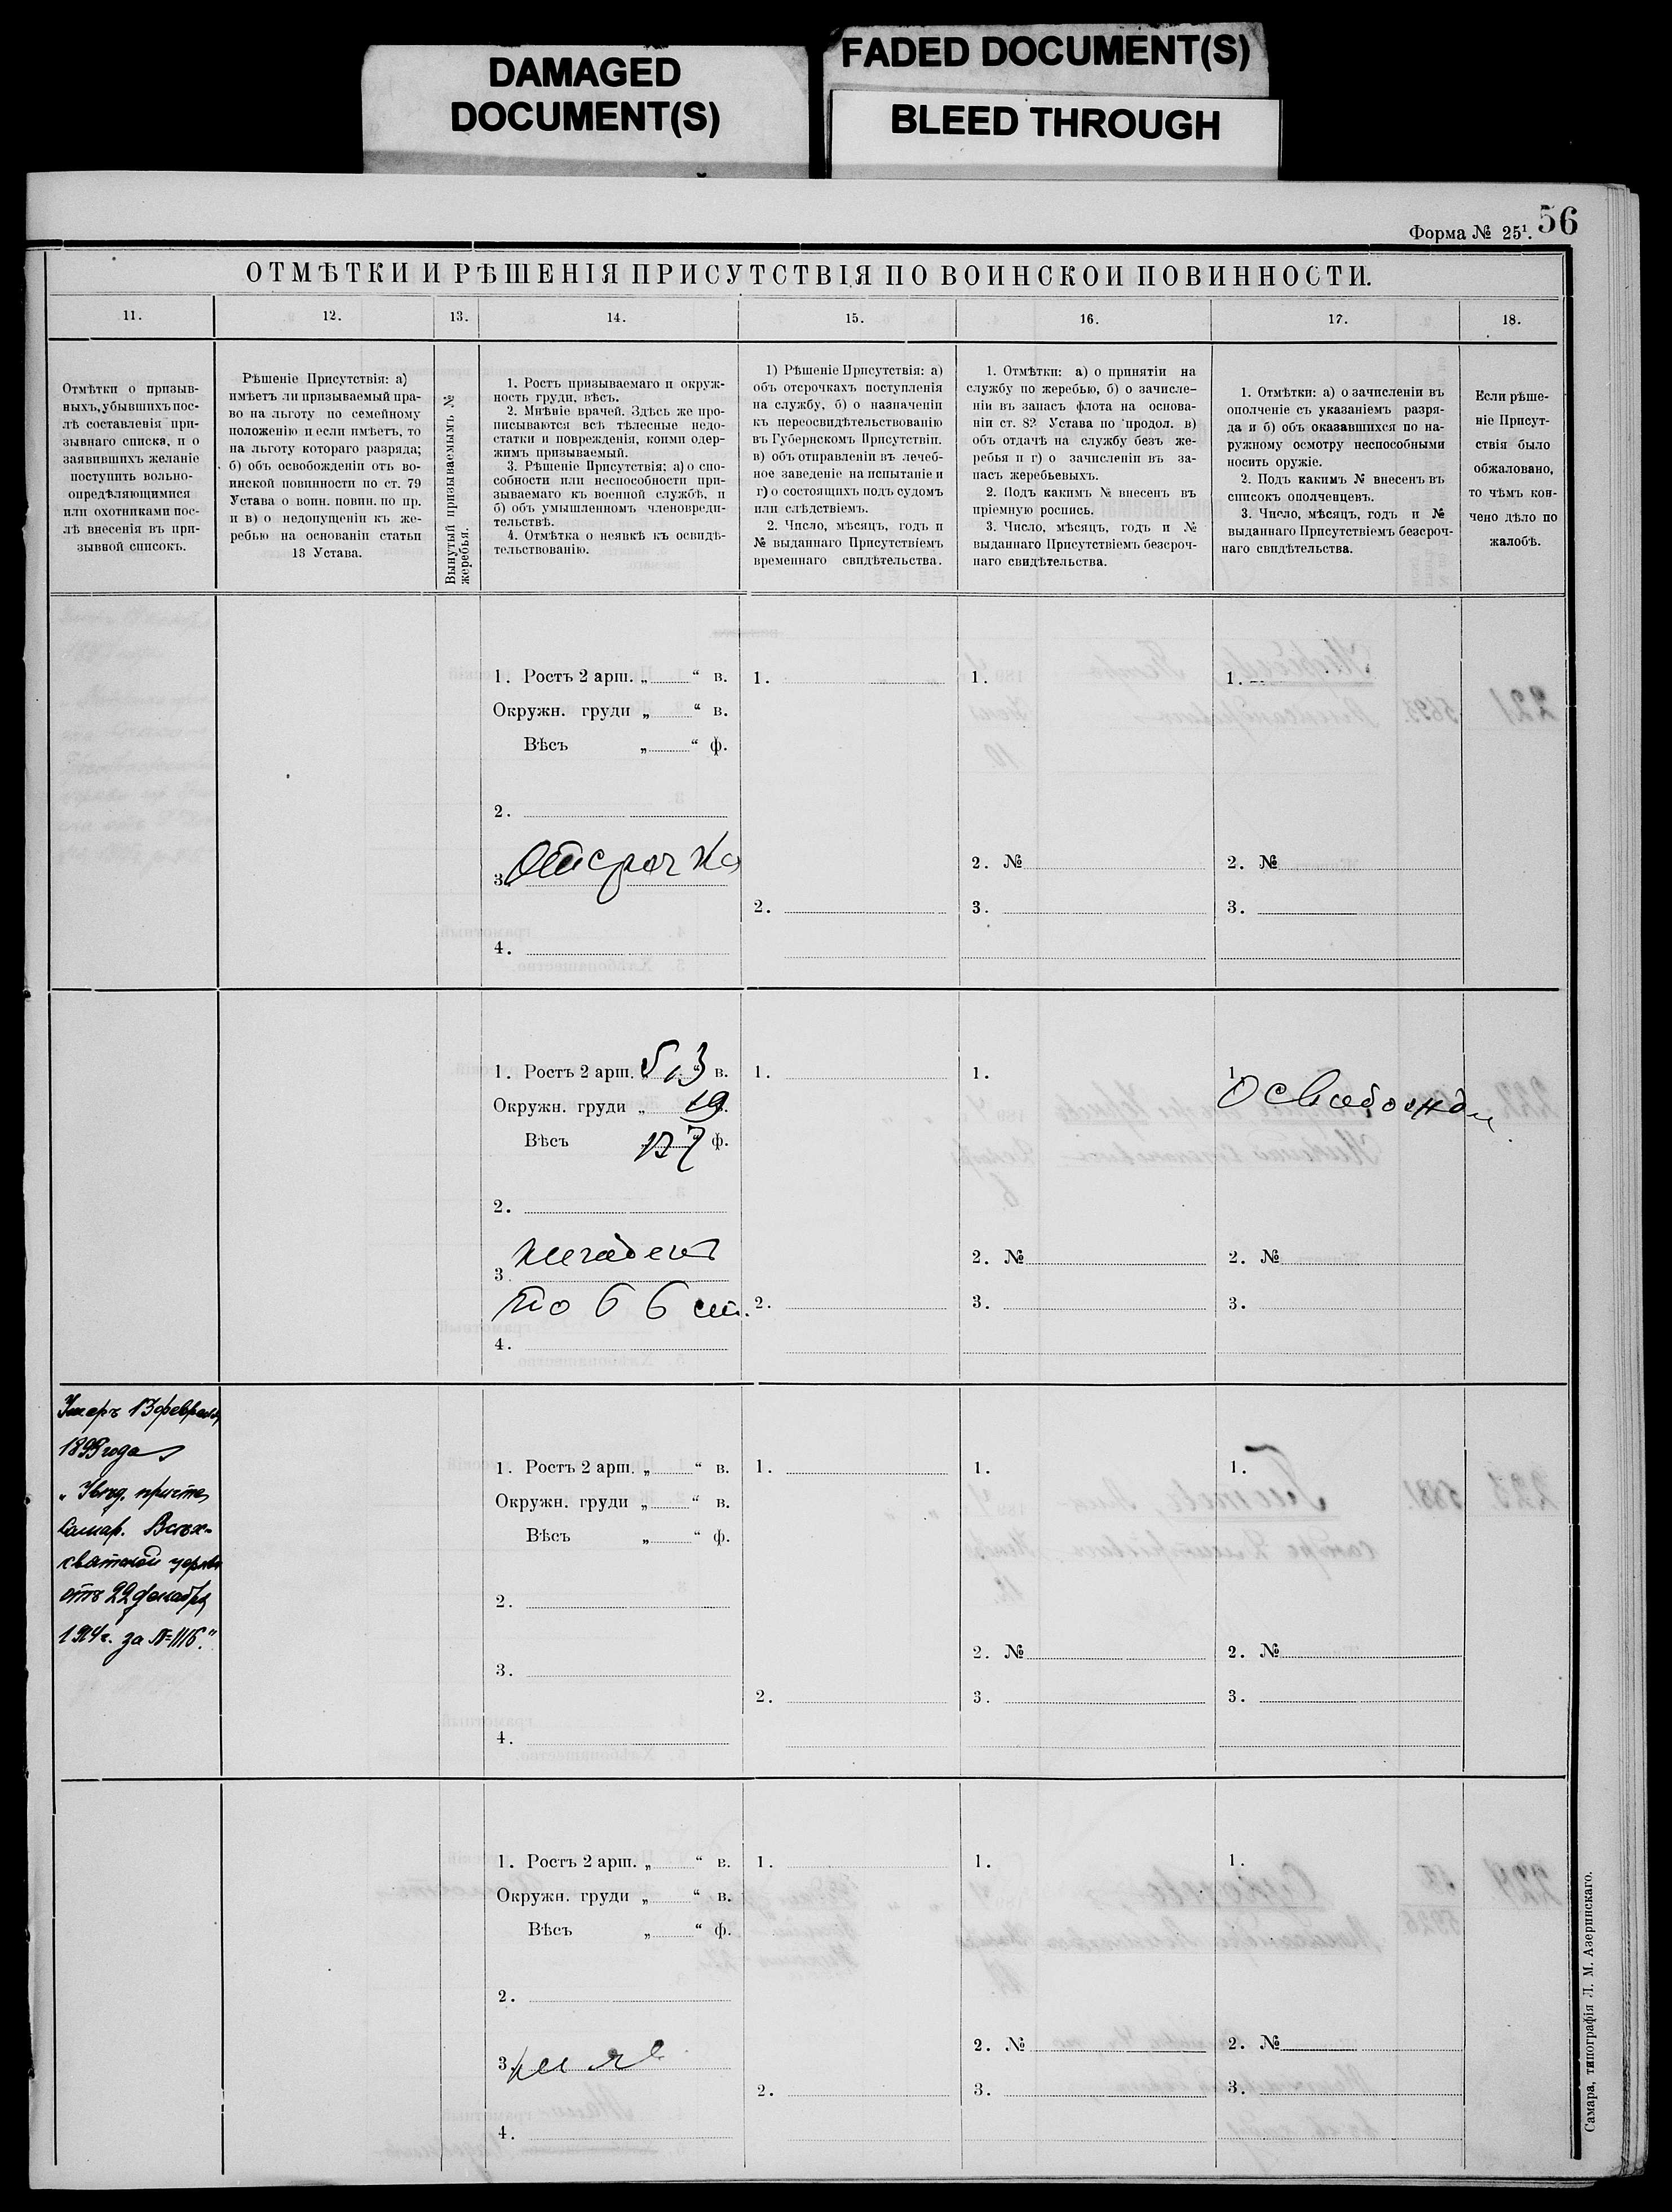 DAMAGED
DOCUMENT(S)
FADED DOCUMENT(S)
BLEED THROUGH
Форма № 25¹. 56
ОТМѢТКИ И РѢШЕНІЯ ПРИСУТСТВІЯ ПО ВОИНСКОИ ПОВИННОСТИ.
11.
12.
13.
14.
15.
16.
17.
18.
Отмѣтки о призыв-
ныхъ, убывшихъ пос-
лѣ составленія при-
зывнаго списка, и о
заявившихъ желаніе
поступить вольно-
опредѣляющимися
или охотниками пос-
лѣ внесенія въ при-
зывной списокъ.
Рѣшеніе Присутствія: а)
имѣетъ ли призываемый пра-
во на льготу по семейному
положенію и если имѣетъ, то
на льготу котораго разряда;
б) объ освобожденіи отъ во-
инской повинности по ст. 79
Устава о воин. повин. по пр.
и в) о недопущеніи къ же-
ребью на основаніи статьи
13 Устава.
Вынутый призываемымъ №
жеребья.
1. Ростъ призываемаго и окруж-
ность груди, вѣсъ.
2. Мнѣніе врачей. Здѣсь же про-
писываются всѣ тѣлесные недо-
статки и поврежденія, коими одер-
жимъ призываемый.
3. Рѣшеніе Присутствія; а) о спо-
собности или неспособности при-
зываемаго къ военной службѣ, и
б) объ умышленномъ членовреди-
тельствѣ.
4. Отмѣтка о неявкѣ къ освидѣ-
тельствованію.
1) Рѣшеніе Присутствія: а)
объ отсрочкахъ поступленія
на службу, б) о назначеніи
къ переосвидѣтельствованію
въ Губернскомъ Присутствіи.
в) объ отправленіи въ лечеб-
ное заведеніе на испытаніе и
г) о состоящихъ подъ судомъ
или слѣдствіемъ.
2. Число, мѣсяцъ, годъ и
№ выданнаго Присутствіемъ
временнаго свидѣтельства.
1. Отмѣтки: а) о принятіи на
службу по жеребью, б) о зачисле-
ніи въ запасъ флота на основа-
ніи ст. 82 Устава по продол. в)
объ отдачѣ на службу безъ же-
ребья и г) о зачисленіи въ за-
пасъ жеребьевыхъ.
2. Подъ какимъ № внесенъ въ
пріемную роспись.
3. Число, мѣсяцъ, годъ и №
выданнаго Присутствіемъ безсроч-
наго свидѣтельства.
1. Отмѣтки: а) о зачисленіи въ
ополченіе съ указаніемъ разря-
да и б) объ оказавшихся по на-
ружному осмотру неспособными
носить оружіе.
2. Подъ какимъ № внесенъ въ
списокъ ополченцевъ.
3. Число, мѣсяцъ, годъ и №
выданнаго Присутствіемъ безсроч-
наго свидѣтельства.
Если рѣше-
ніе Присут-
ствія было
обжаловано,
то чѣмъ кон-
чено дѣло по
жалобѣ.
1. Ростъ 2 арш. „ “ в.
Окружн. груди „ “ в.
Вѣсъ „ “ ф.
2.
3. Отсрочка
4.
1.
2.
1.
2. №
3.
1.
2. №
3.
1. Ростъ 2 арш. 5 1/3 в.
Окружн. груди „ 19 в.
Вѣсъ 127 ф.
2.
3. негоденъ
по 66 ст.
4.
1.
2.
1.
2. №
3.
1. Освобожд
2. №
3.
Умеръ 13 февраля
1899 года
„Увѣд. причта
Самар. Всѣх-
святской церкви
отъ 22 декабря
1914 г. за № 1116."
1. Ростъ 2 арш. „ “ в.
Окружн. груди „ “ в.
Вѣсъ „ “ ф.
2.
3.
4.
1.
2.
1.
2. №
3.
1.
2. №
3.
1. Ростъ 2 арш. „ “ в.
Окружн. груди „ “ в.
Вѣсъ „ “ ф.
2.
3.
4.
1.
2.
1.
2. №
3.
1.
2. №
3.
Самара, типографія Л. М. Азеринскаго.